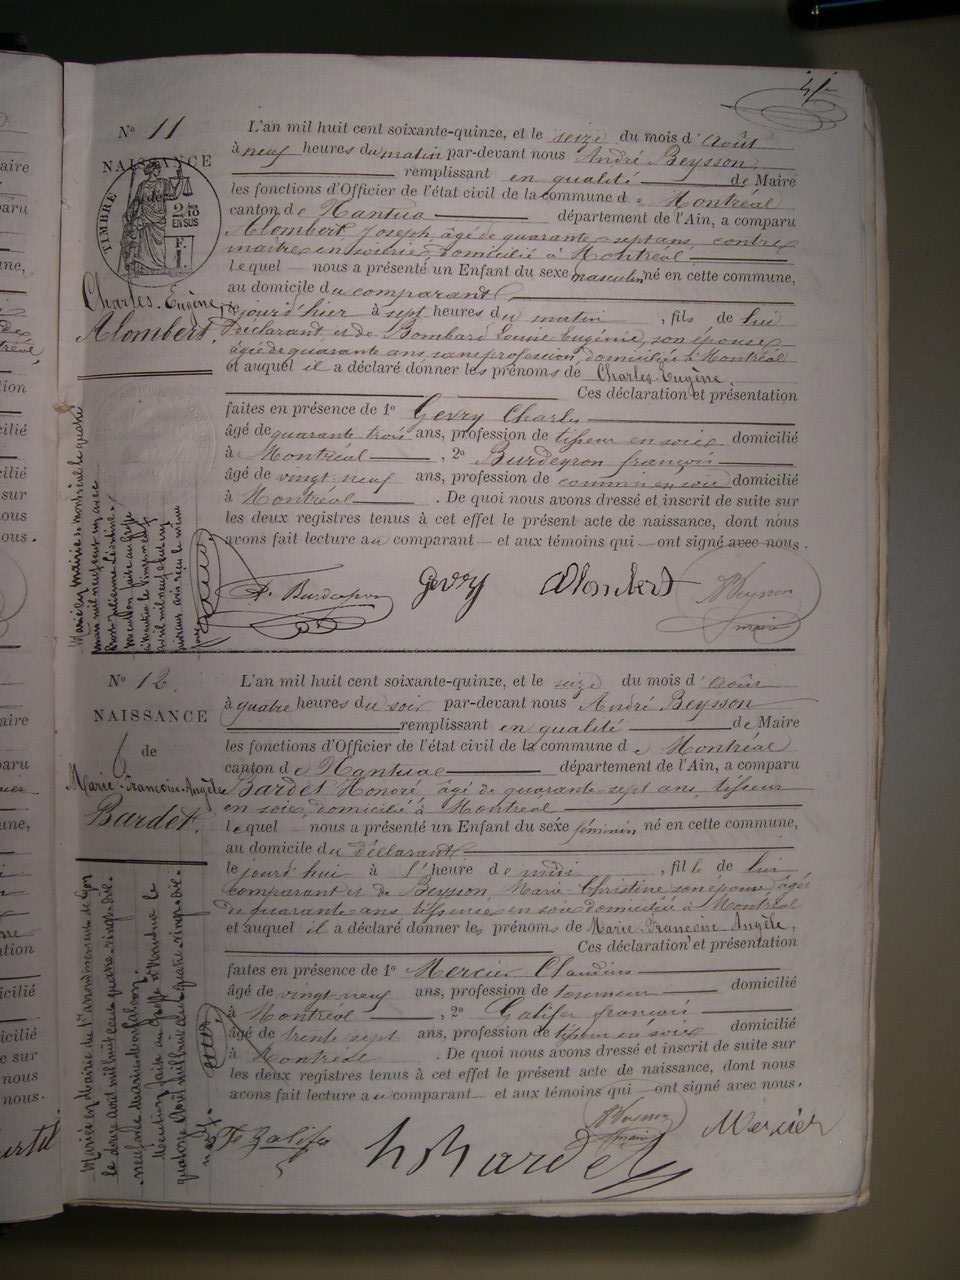 N° 11
NAISSANCE
de
TIMBRE
2/10 EN SUS
Charles-Eugène
Alombert.
L'an mil huit cent soixante-quinze, et le seize du mois d'août
à neuf heures du matin par-devant nous André Beysson
remplissant en qualité de Maire
les fonctions d'Officier de l'état civil de la commune de Montréal
canton de Nantua département de l'Ain, a comparu
Alombert Joseph âgé de quarante-sept ans, contre
maitre en soierie, domicilié à Montréal
lequel nous a présenté un Enfant du sexe masculin né en cette commune,
au domicile du comparant
jourd'hier à sept heures du matin, fils de lui
déclarant, et de Bombard Louise Eugénie, son épouse
âgée de quarante ans, sans profession, domiciliée à Montréal
et auquel il a déclaré donner les prénoms de Charles-Eugène.
Ces déclaration et présentation
faites en présence de 1° Gevry Charles
âgé de quarante trois ans, profession de tisseur en soie domicilié
à Montréal, 2° Burdeyron françois
âgé de vingt-neuf ans, profession de commis en soie domicilié
à Montréal. De quoi nous avons dressé et inscrit de suite sur
les deux registres tenus à cet effet le présent acte de naissance, dont nous
avons fait lecture au comparant et aux témoins qui ont signé avec nous.
Marié en mairie de Montréal le quatre
mars mil neuf cent
F. Burdeyron Gevry Alombert Beysson
maire
N° 12.
NAISSANCE
de
Marie-Françoise-Angèle
Bardet.
L'an mil huit cent soixante-quinze, et le seize du mois d'août
à quatre heures du soir par-devant nous André Beysson
remplissant en qualité de Maire
les fonctions d'Officier de l'état civil de la commune de Montréal
canton de Nantua département de l'Ain, a comparu
Bardet Honoré, âgé de quarante-sept ans, tisseur
en soie, domicilié à Montréal
lequel nous a présenté un Enfant du sexe féminin né en cette commune,
au domicile du déclarant
le jourd'hui à l'heure de midi, fille de lui
comparant et de Beysson, Marie Christine son épouse âgée
de quarante ans, tisseuse en soie domiciliée à Montréal
et auquel il a déclaré donner les prénoms de Marie Françoise Angèle,
Ces déclaration et présentation
faites en présence de 1° Mercier Claudius
âgé de vingt-neuf ans, profession de tourneur domicilié
à Montréal, 2° Galifer françois
âgé de trente sept ans, profession de tisseur en soie domicilié
à Montréal. De quoi nous avons dressé et inscrit de suite sur
les deux registres tenus à cet effet le présent acte de naissance, dont nous
avons fait lecture au comparant et aux témoins qui ont signé avec nous.
Mariée en Mairie du 1er arrondissement de Lyon
le douze avril mil huit cent quatre-vingt-dix-
neuf avec
Mention faite au Greffe de Nantua le
quatorze Avril mil huit cent quatre vingt dix-
neuf.
Beysson
maire
Mercier
F Galifer
h Bardet